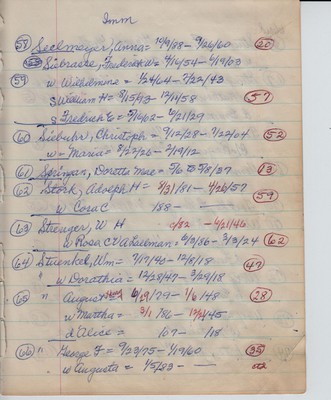 Imm
58 Seelmeyer, Anna = 10/9/88 - 9/26/60 20
Siebrasse, Frederick W = 9/16/54 - 6/19/03
59 w Wilhelmine = 1/24/64 - 7/22/43
s William H = 8/15/93 12/14/58 57
s Fredrich E = 5/16/02 - 6/21/29
60 Siebuhr, Christoph = 9/12/28 - 1/22/04 52
w - Maria = 8/27/26 - 2/19/12
61 Springer, Doretta Mae = 5/6 to 5/8/37 13
62 Stork, Adolph H = 3/31/81 - 4/26/57
w Cora C /88 - 59
63 Streuger, W H /82 - 4/21/46
w Rosa C V = 2/2/86 - 3/3/24 62
64 Struenkel, Wm = 7/17/40 - 12/8/18
" w Dorathia = 12/28/47 - 3/29/18 47
65 " August = 6/29/79 - 1/6/48 28
w Martha = 3/1/86 - 12/4/45
d Alice = /07 - /18
66 " George F = 9/23/75 - 1/19/60 35
w Augusta = 1/5/83 -